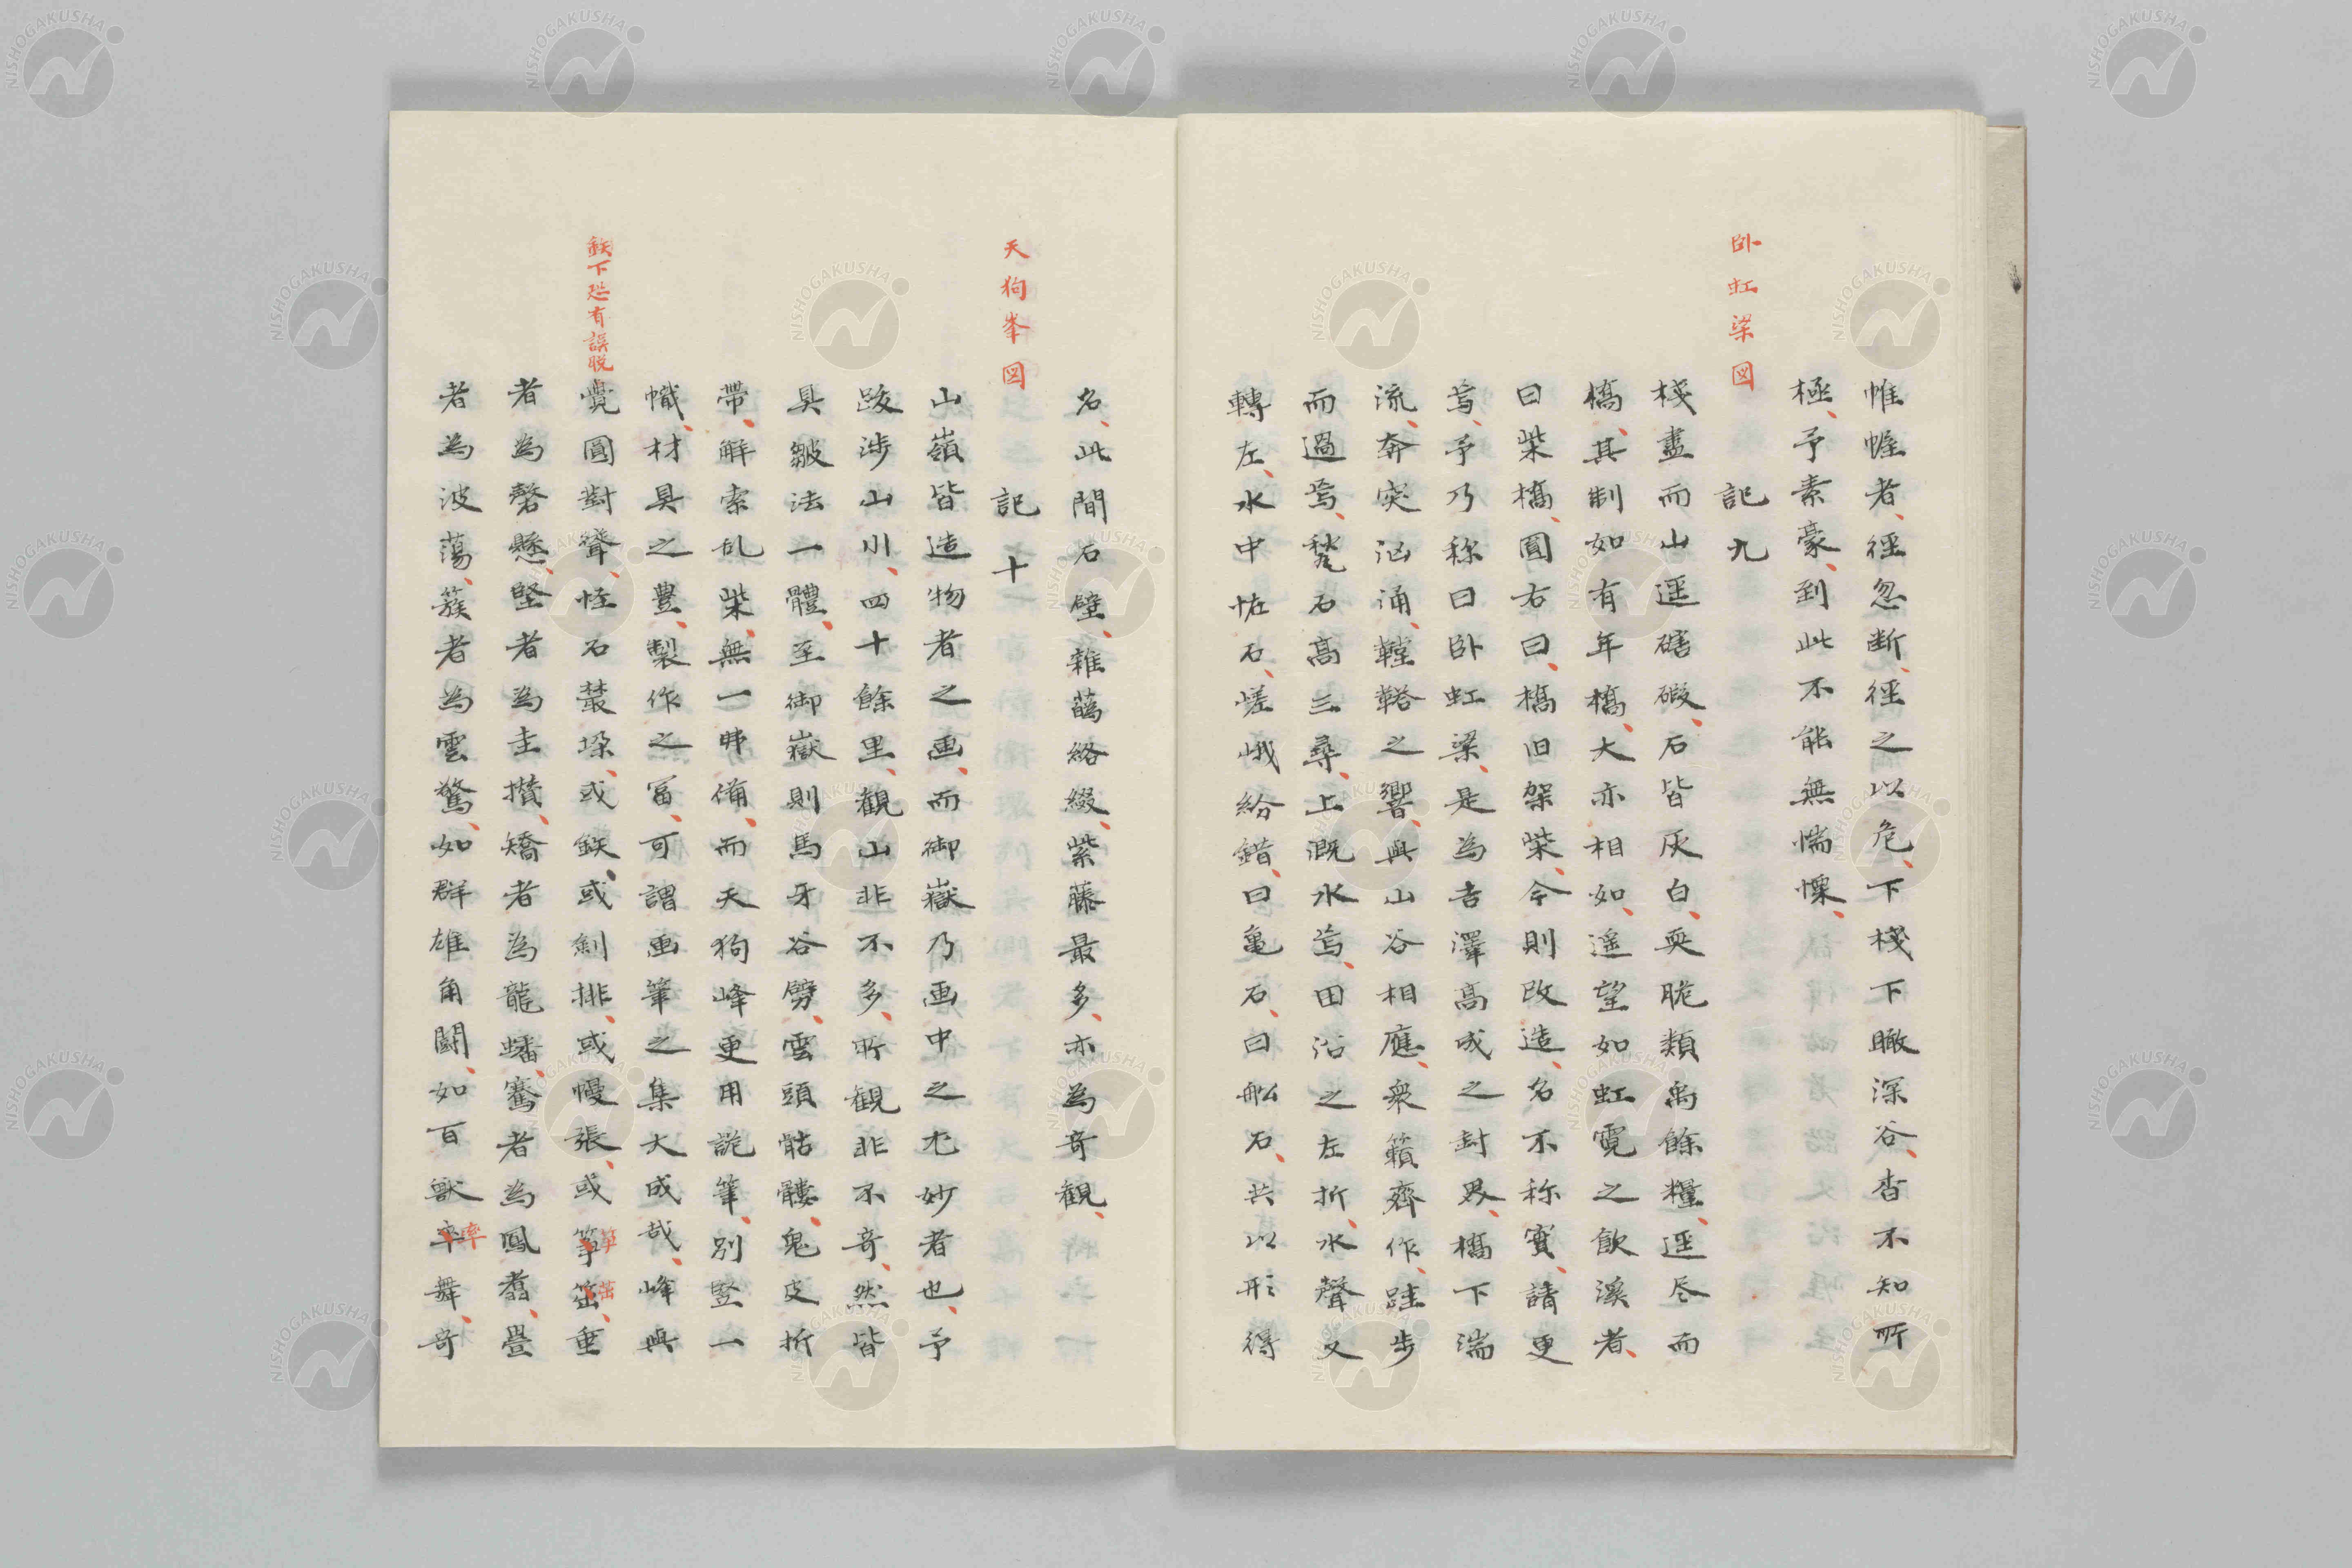 帷幄者、径忽断、径之以危、下棧下瞰深谷、杳不知所
極、予素豪、到此不能無惴慄、
臥虹梁図
記九
棧盡而山遥磍碬、石皆灰白、耎脆類禹餘糧、逕尽而
橋、其制如有年橋、大亦相如、遥望如虹霓之飲溪者、
曰柴橋、圓右曰、橋旧架柴、今則改造、名不称實、請更
焉、予乃称曰臥虹梁、是為吉澤高成之封界、橋下湍
流、奔突洶涌、鞺鞳之響、與山谷相應、衆籟齊作、跬步
而過焉、甃石高三尋、上溉水焉、田沿之左折、水聲又
轉左、水中恠石、嵯峨紛錯、曰亀石、曰舩石、共以形得
名、此間石壁、雜蔦絡綴、紫藤最多、亦為奇観、
天狗峯図
記十
山嶺皆造物者之画、而御嶽乃画中之尤妙者也、予
跋涉山川、四十餘里、観山非不多、所観非不奇、然皆
具皴法一體、至御嶽則馬牙谷劈、雲頭骷髏、鬼皮折
帶、解索乱柴、無一弗備、而天狗峰更用詭筆、別竪一
幟、材具之豊、製作之冨、可謂画筆之集大成哉、峰與
鉄下恐有誤脱
覺圓對聳、恠石藂垜、或鉄或剣排、或幔張、或筝笽、垂
者為磬懸、竪者為圭攅、矯者為龍蟠、騫者為鳳翥、疊
者為波蕩、簇者為雲驚、如群雄角闘、如百獣率舞、奇
率